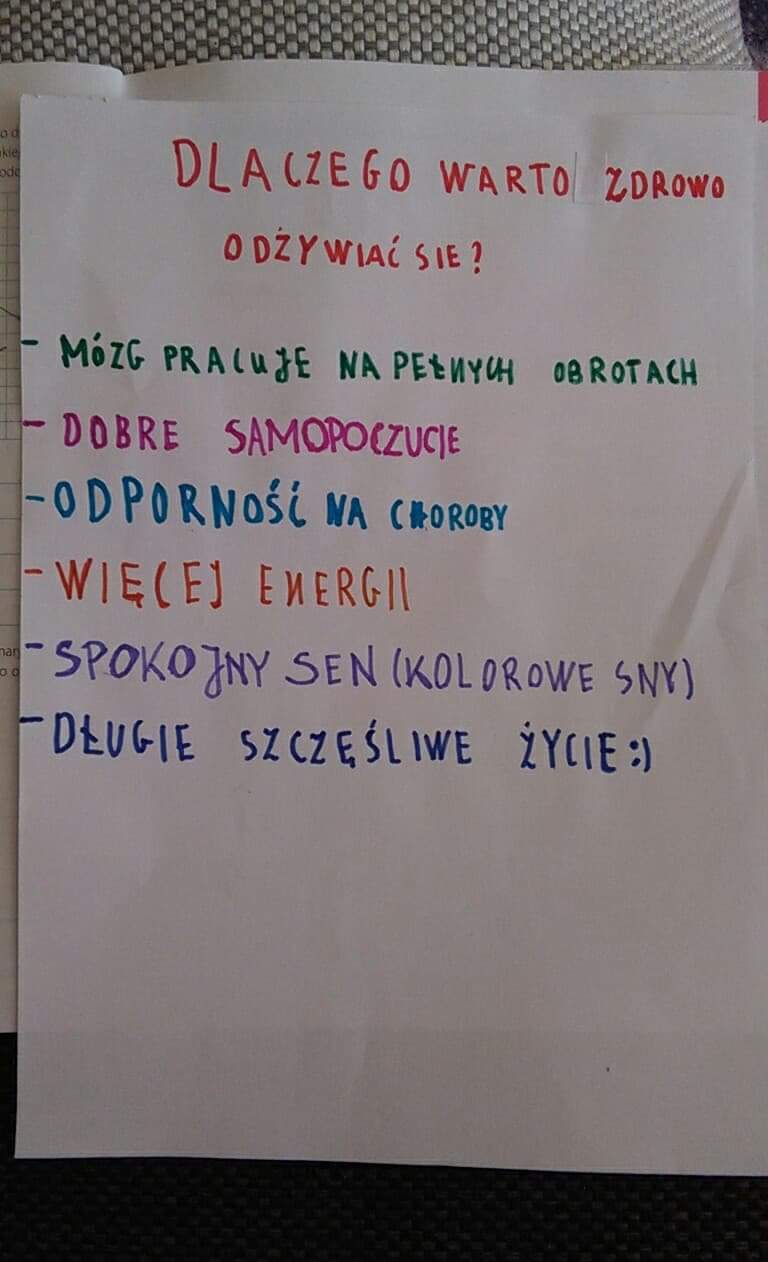 DLACZEGO WARTO ZDROWO
ODŻYWIAĆ SIE?
- MÓZG PRACUJE NA PEŁNYCH OBROTACH
- DOBRE SAMOPOCZUCIE
- ODPORNOŚĆ NA CHOROBY
- WIĘCEJ ENERGII
- SPOKOJNY SEN (KOLOROWE SNY)
- DŁUGIE SZCZĘŚLIWE ŻYCIE :)